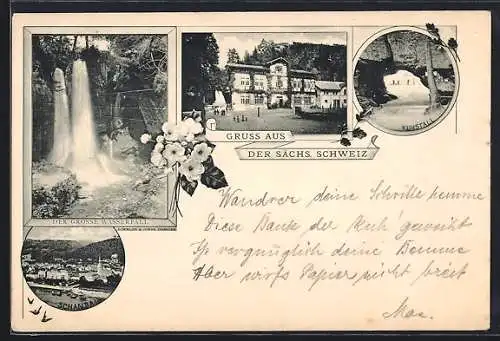 GRUSS AUS
DER SÄCHS. SCHWEIZ
KUHSTALL
DER GROSSE WASSERFALL
SCHANDAU
Wandrer deine Schritte hemme
Diese Bank der Ruh' geweiht
Ist vergnüglich deine Bemme
Aber wirf's Papier nicht breit
Max.